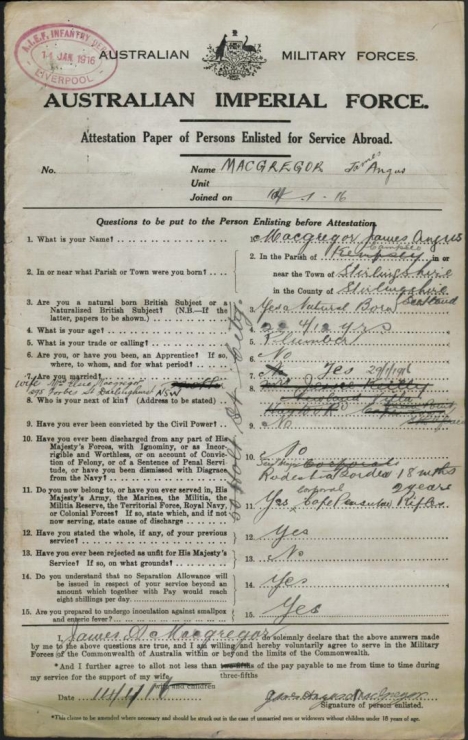 A.I.E.F. INFANTRY DEP
14 JAN 1916
LIVERPOOL
AUSTRALIAN MILITARY FORCES.
AUSTRALIAN IMPERIAL FORCE.
Attestation Paper of Persons Enlisted for Service Abroad.
No. Name MACGREGOR James Angus
Unit
Joined on 14 . 1 . 16
Questions to be put to the Person Enlisting before Attestation.
1. What is your Name? 1. Macgregor James Angus
2. In or near what Parish or Town were you born? 2. In the Parish of in or
near the Town of Stirlingshire
in the County of Stirlingshire
Scotland
3. Are you a natural born British Subject or a
Naturalized British Subject? (N.B.—If the
latter, papers to be shown.) 3. Yes a Natural Born
4. What is your age? 4. yrs
5. What is your trade or calling? 5. Plumber
6. Are you, or have you been, an Apprentice? If so,
where, to whom, and for what period? 6. No
7. Are you married? 7. Yes
wife Mrs Macgregor
Forbes St Darlinghurst NSW
8. Who is your next of kin? (Address to be stated) 8.
9. Have you ever been convicted by the Civil Power? 9. No
10. Have you ever been discharged from any part of His
Majesty's Forces, with Ignominy, or as Incor-
rigible and Worthless, or on account of Convic-
tion of Felony, or of a Sentence of Penal Servi-
tude, or have you been dismissed with Disgrace
from the Navy? 10. No
11. Do you now belong to, or have you ever served in, His
Majesty's Army, the Marines, the Militia, the
Militia Reserve, the Territorial Force, Royal Navy,
or Colonial Forces? If so, state which, and if not
now serving, state cause of discharge 11. Corporal 18 mths
Yes, Cape Peninsular Rifles 2 years
12. Have you stated the whole, if any, of your previous
service? 12. Yes
13. Have you ever been rejected as unfit for His Majesty's
Service? If so, on what grounds? 13. No
14. Do you understand that no Separation Allowance will
be issued in respect of your service beyond an
amount which together with Pay would reach
eight shillings per day. 14. Yes
15. Are you prepared to undergo inoculation against smallpox
and enteric fever? 15. Yes
I, James Macgregor do solemnly declare that the above answers made
by me to the above questions are true, and I am willing and hereby voluntarily agree to serve in the Military
Forces of the Commonwealth of Australia within or beyond the limits of the Commonwealth.
*And I further agree to allot not less than of the pay payable to me from time to time during
three-fifths
my service for the support of my wife.
with and children
Date
James Angus MacGregor
Signature of person enlisted.
*This clause to be amended where necessary and should be struck out in the case of unmarried men or widowers without children under 16 years of age.